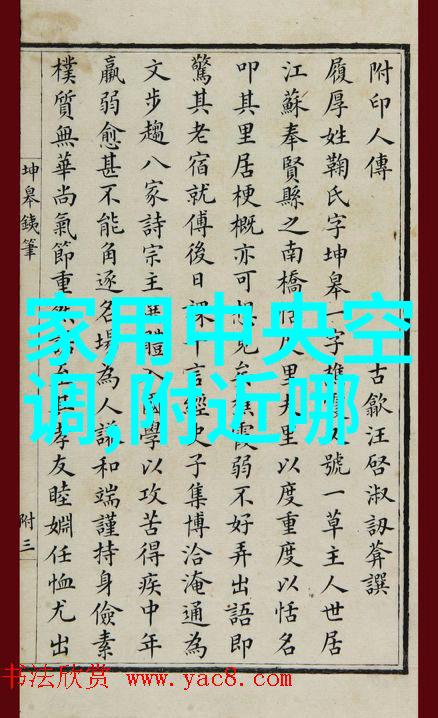 附印人傳
古歙汪啓淑訒葊譔
履厚姓鞠氏字坤皋一字號一草主人世居
江蘇奉賢縣之南橋里夫里以度重度以恬名
叩其里居梗概亦可見矣霞弱不好弄出語即
驚其老宿就傅後日課千言經史子集博洽淹通為
文步趨八家詩宗主體入國學以攻苦得疾中年
羸弱愈甚不能角逐名場為人謙和端謹持身儉素
樸質無華尚氣節重孝友睦婣任恤尤出
坤皋銕筆
附三
家用中央空
调,附近哪
书法欣赏 www.yac8.com